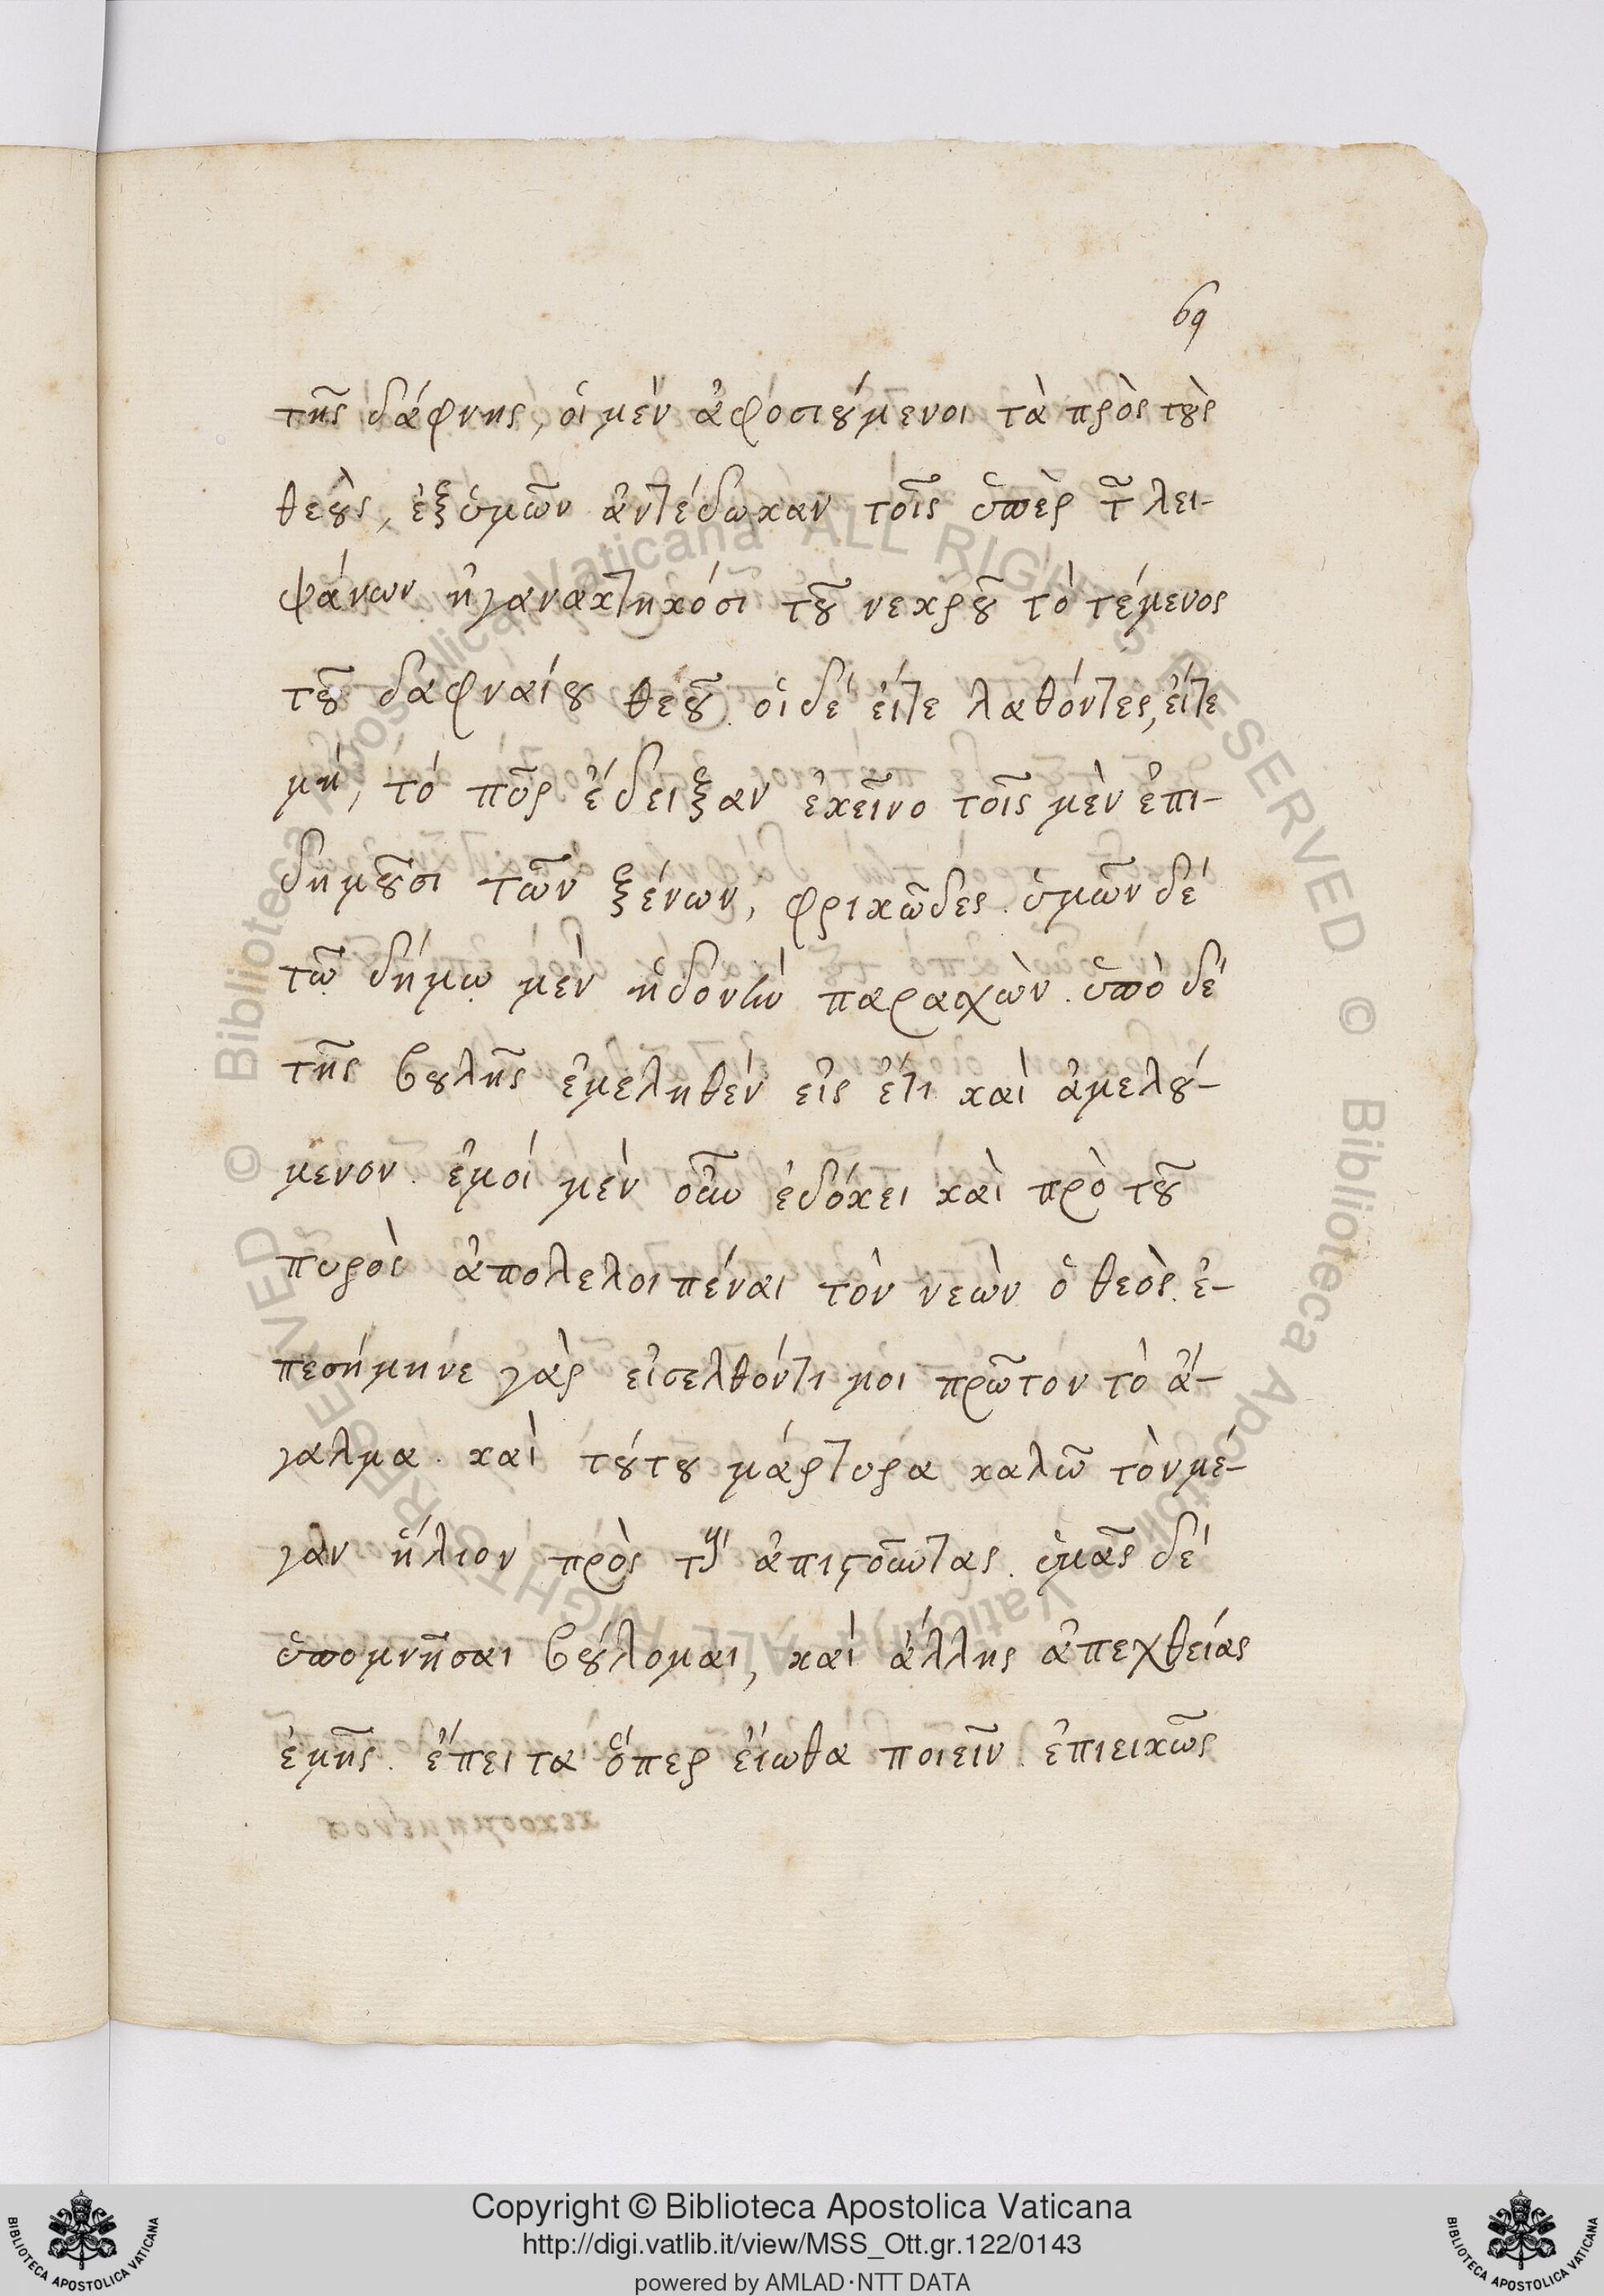 69
τῆς δάφνης, οἱ μὲν ἀφοσιούμενοι τὰ πρὸς τοὺς
θεοὺς, ἐξ ὑμῶν ἀντέδωκαν τοῖς ὑπὲρ τῶν λει-
ψάνων ἠγανακτηκόσι τοῦ νεκροῦ τὸ τέμενος
τοῦ δαφναίου θεοῦ. οἱ δέ εἴτε λαθόντες, εἴτε
μή, τό πῦρ ἔδειξαν ἐκεῖνο τοῖς μὲν ἐπι-
δημοῦσι τῶν ξένων, φρικῶδες. ὑμῶν δέ
τῷ δήμῳ μὲν ἡδονὴν παρασχὼν. ὑπὸ δέ
τῆς βουλῆς ἐμεληθέν εἰς ἔτι καὶ ἀμελού-
μενον. ἐμοί μὲν οὖν ἐδόκει καὶ πρὸ τοῦ
πυρὸς ἀπολελοιπέναι τὸν νεὼν ὁ θεὸς. ἐ-
πεσήμηνε γὰρ εἰσελθόντι μοι πρῶτον τὸ ἄ-
γαλμα. καὶ τούτου μάρτυρα καλῶ τὸν μέ-
γαν ἥλιον πρὸς τοὺς ἀπιστοῦντας. ὑμᾶς δέ
ὑπομνῆσαι βούλομαι, καὶ ἄλλης ἀπεχθείας
ἐμῆς. ἔπειτα ὅπερ εἴωθα ποιεῖν ἐπιεικῶς
© Biblioteca Apostolica Vaticana ALL RIGHTS RESERVED © Biblioteca Apostolica Vaticana ALL RIGHTS RESERVED
Copyright © Biblioteca Apostolica Vaticana
http://digi.vatlib.it/view/MSS_Ott.gr.122/0143
powered by AMLAD·NTT DATA
BIBLIOTECA APOSTOLICA VATICANA
BIBLIOTECA APOSTOLICA VATICANA